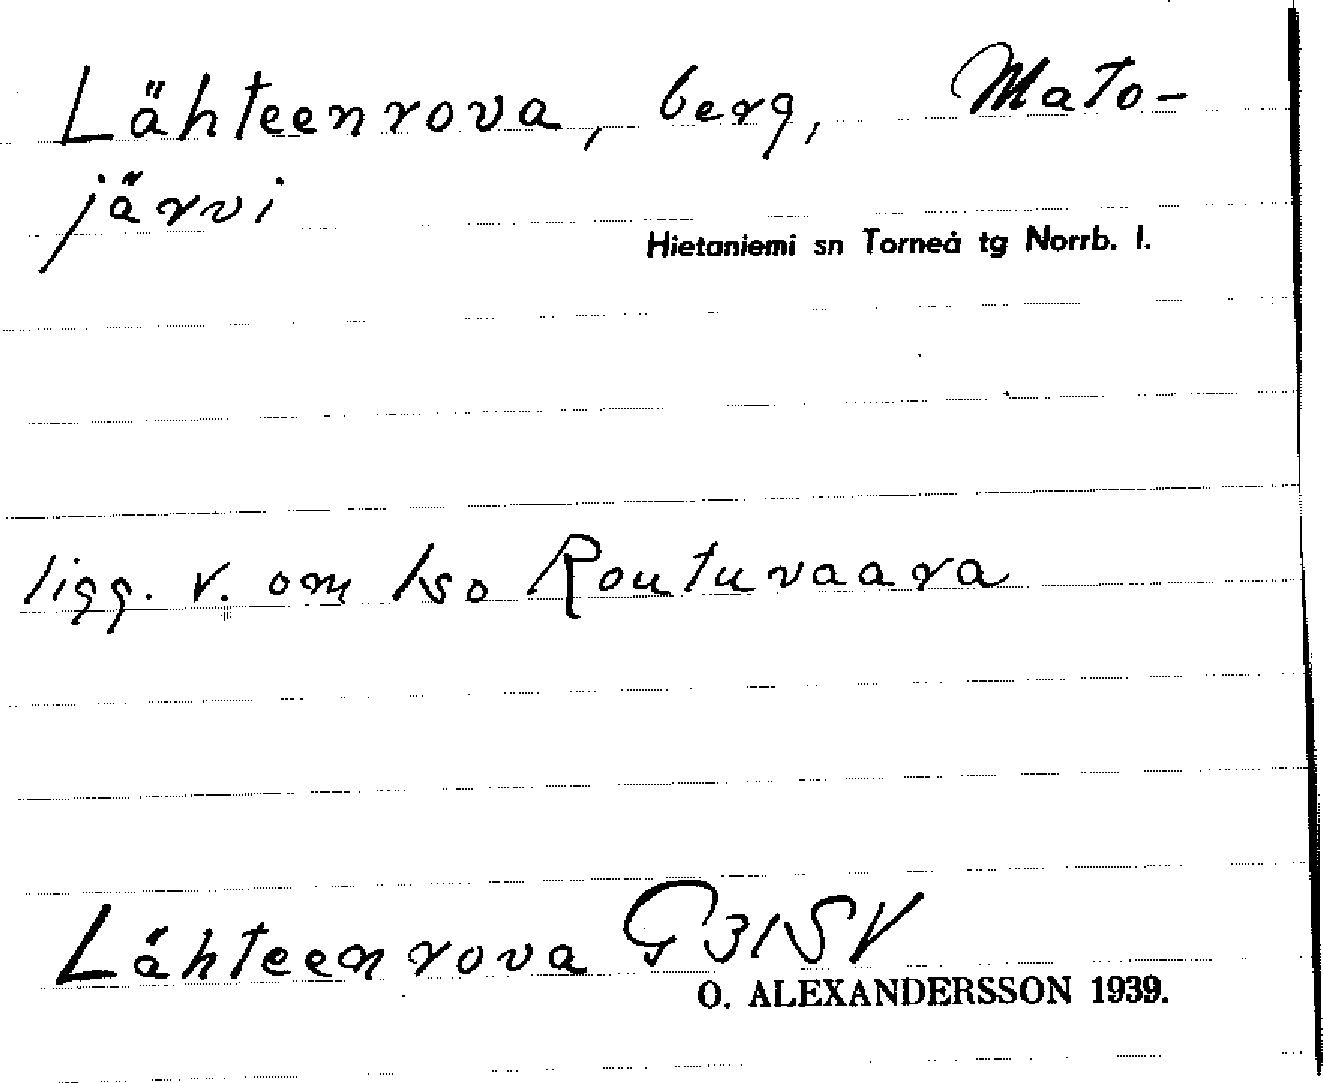 Lähteenrova, berg, Mato-
järvi
Hietaniemi sn Torneå tg Norrb. l.
ligg. v. om Iso Routuvaara
Lähteenrova G31SV
O. ALEXANDERSSON 1939.